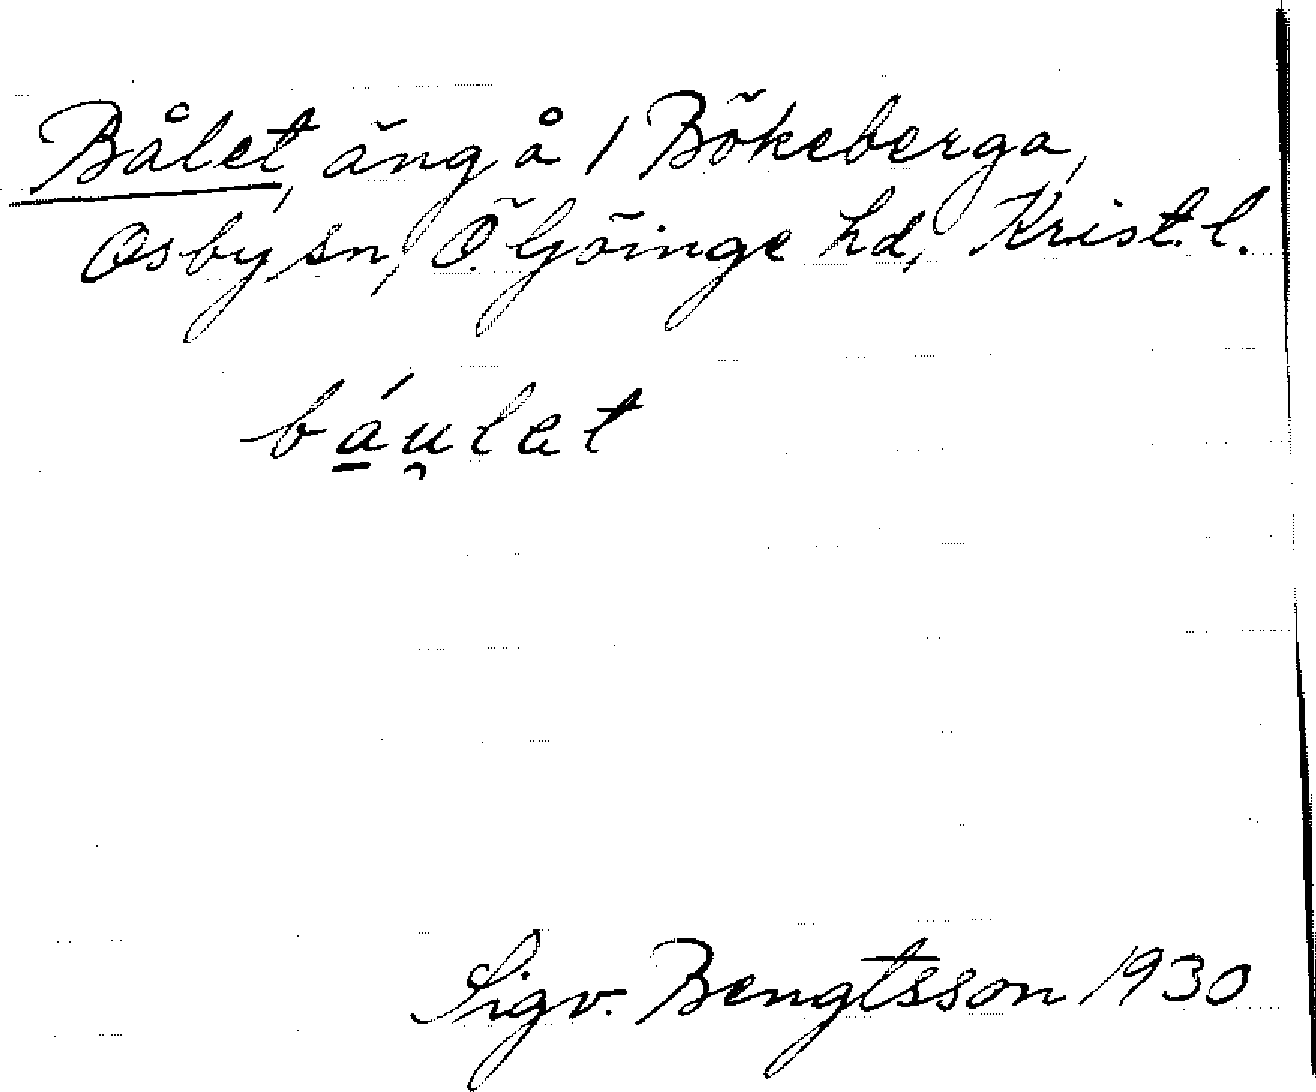 Bålet, äng å 1 Bökeberga,
Osby sn, Ö. Göinge hd, Krist. l.
bá̱u̯let
Sigv. Bengtsson 1930